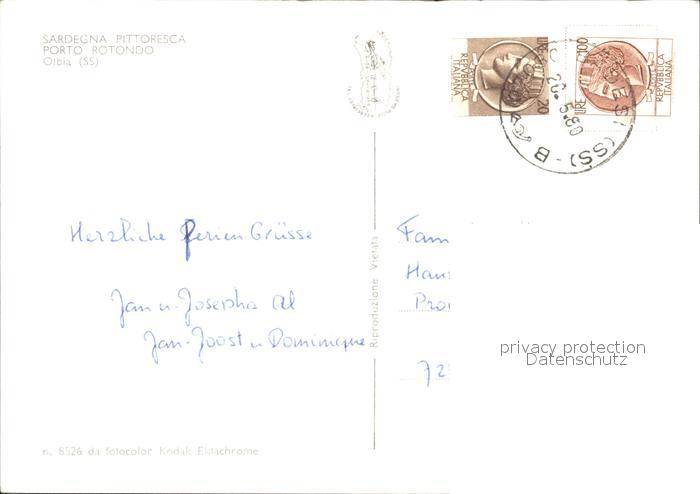 SARDEGNA PITTORESCA
PORTO ROTONDO
Olbia (SS)
LIRE 20
REPVBBLICA
ITALIANA
LIRE 100
REPVBBLICA
ITALIANA
26.5.80
(SS)-B
Herzliche Ferien Grüsse
Jan u. Josepha Al
Jan-Joost u Dominique
Riproduzione Vietata
Fam
privacy protection
Datenschutz
72
n. 8526 da fotocolor Kodak Ektachrome